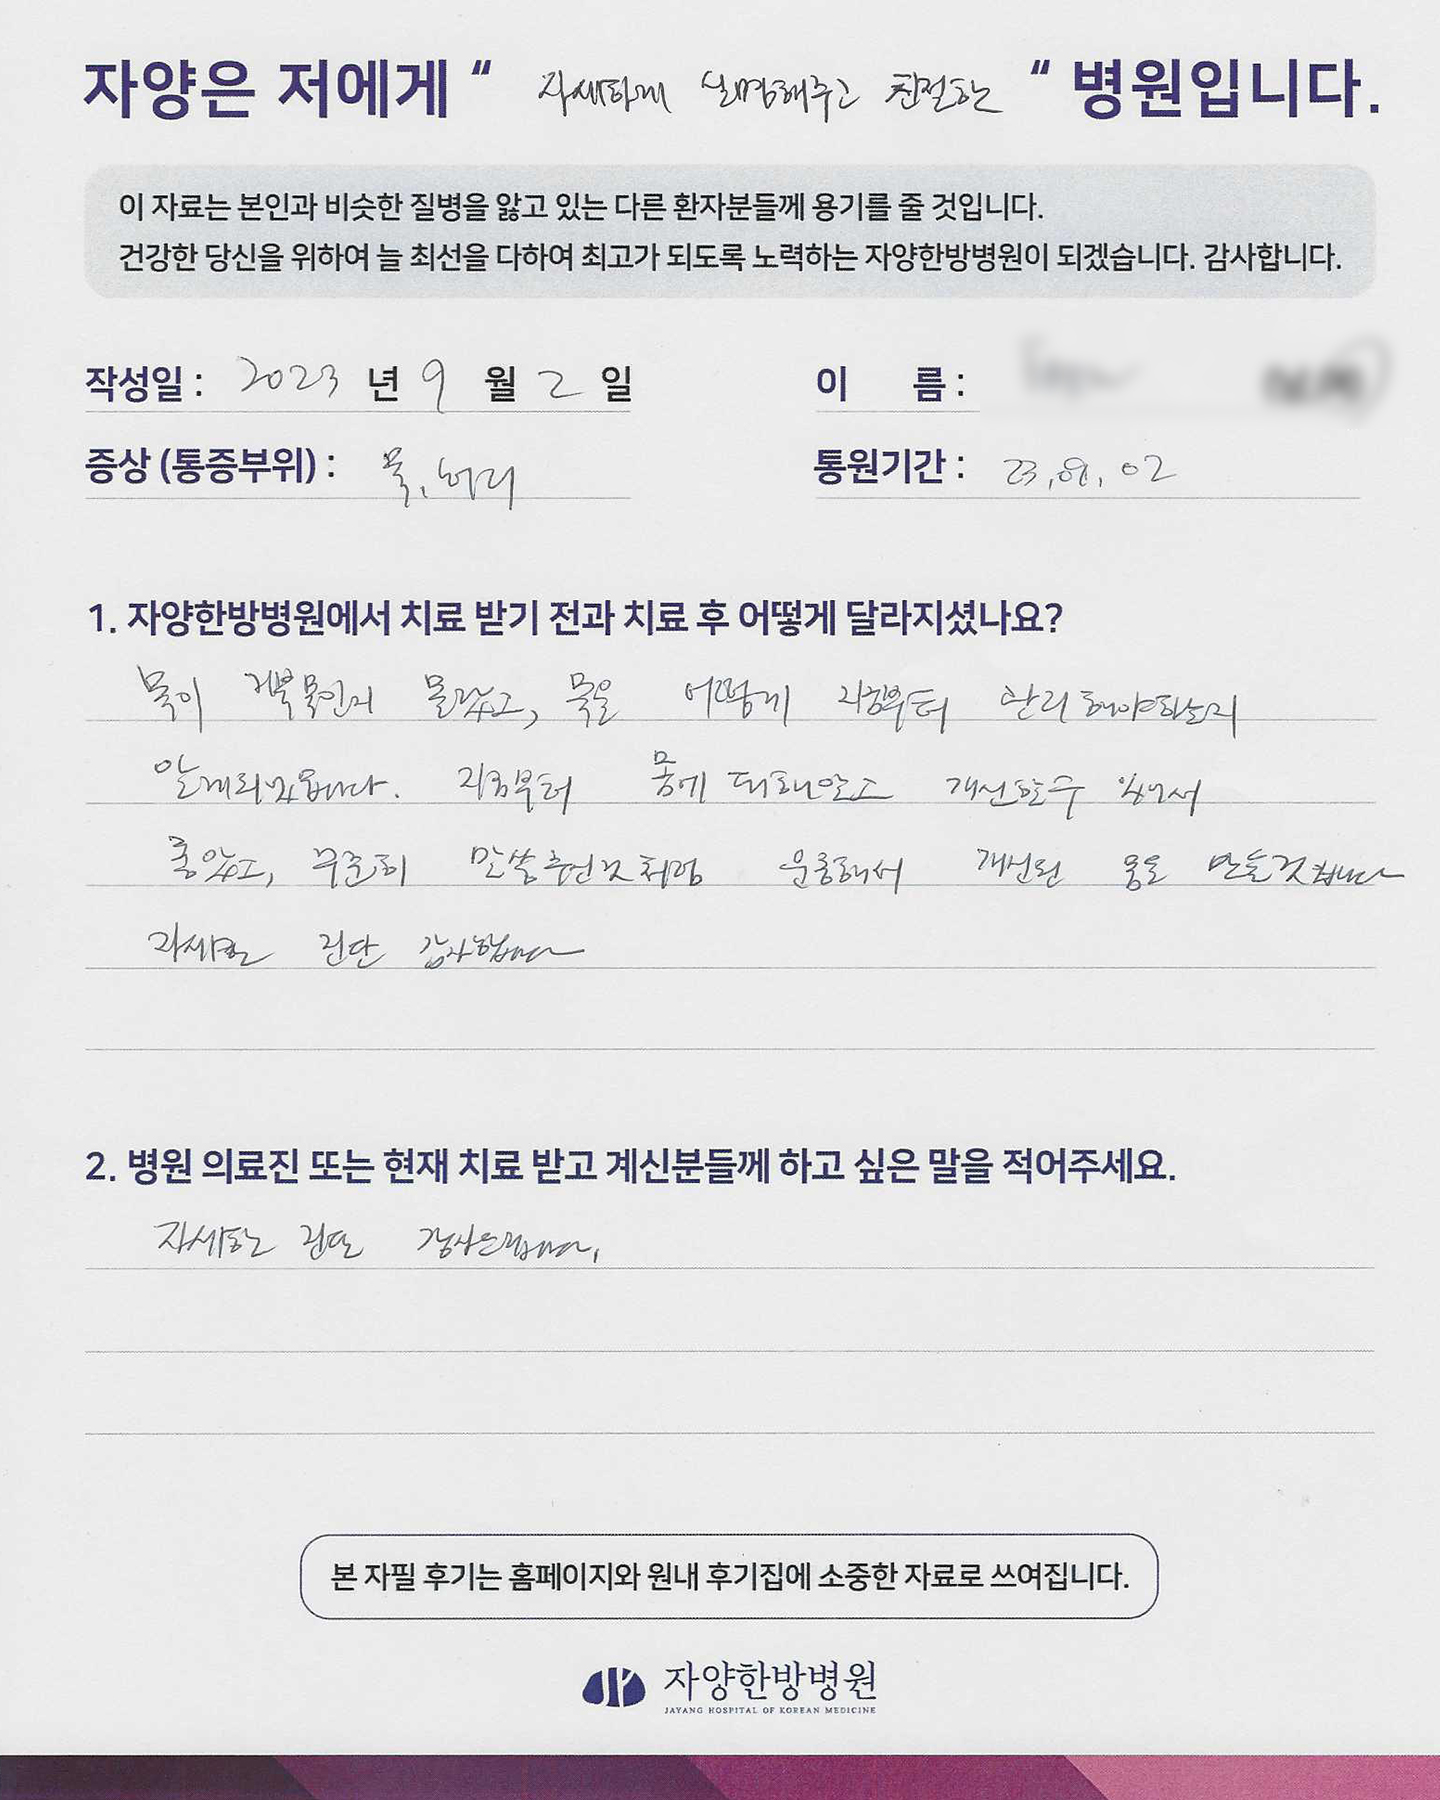 자양은 저에게 “ 자세하게 설명해주고 친절한 “ 병원입니다.
이 자료는 본인과 비슷한 질병을 앓고 있는 다른 환자분들께 용기를 줄 것입니다.
건강한 당신을 위하여 늘 최선을 다하여 최고가 되도록 노력하는 자양한방병원이 되겠습니다. 감사합니다.
작성일 : 2023 년 9 월 2 일
이 름 :
증상 (통증부위) : 목, 허리
통원기간 : 23, 09, 02
1. 자양한방병원에서 치료 받기 전과 치료 후 어떻게 달라지셨나요?
목이 거북목인지 몰랐고, 목을 어떻게 지금부터 관리해야하는지
알게되었습니다. 지금부터 몸에 대해알고 개선할수 있어서
좋았고, 꾸준히 말씀주신것처럼 운동해서 개선된 몸을 만들것입니다
자세한 진단 감사합니다
2. 병원 의료진 또는 현재 치료 받고 계신분들께 하고 싶은 말을 적어주세요.
자세한 진단 감사드립니다.
본 자필 후기는 홈페이지와 원내 후기집에 소중한 자료로 쓰여집니다.
자양한방병원
JAYANG HOSPITAL OF KOREAN MEDICINE